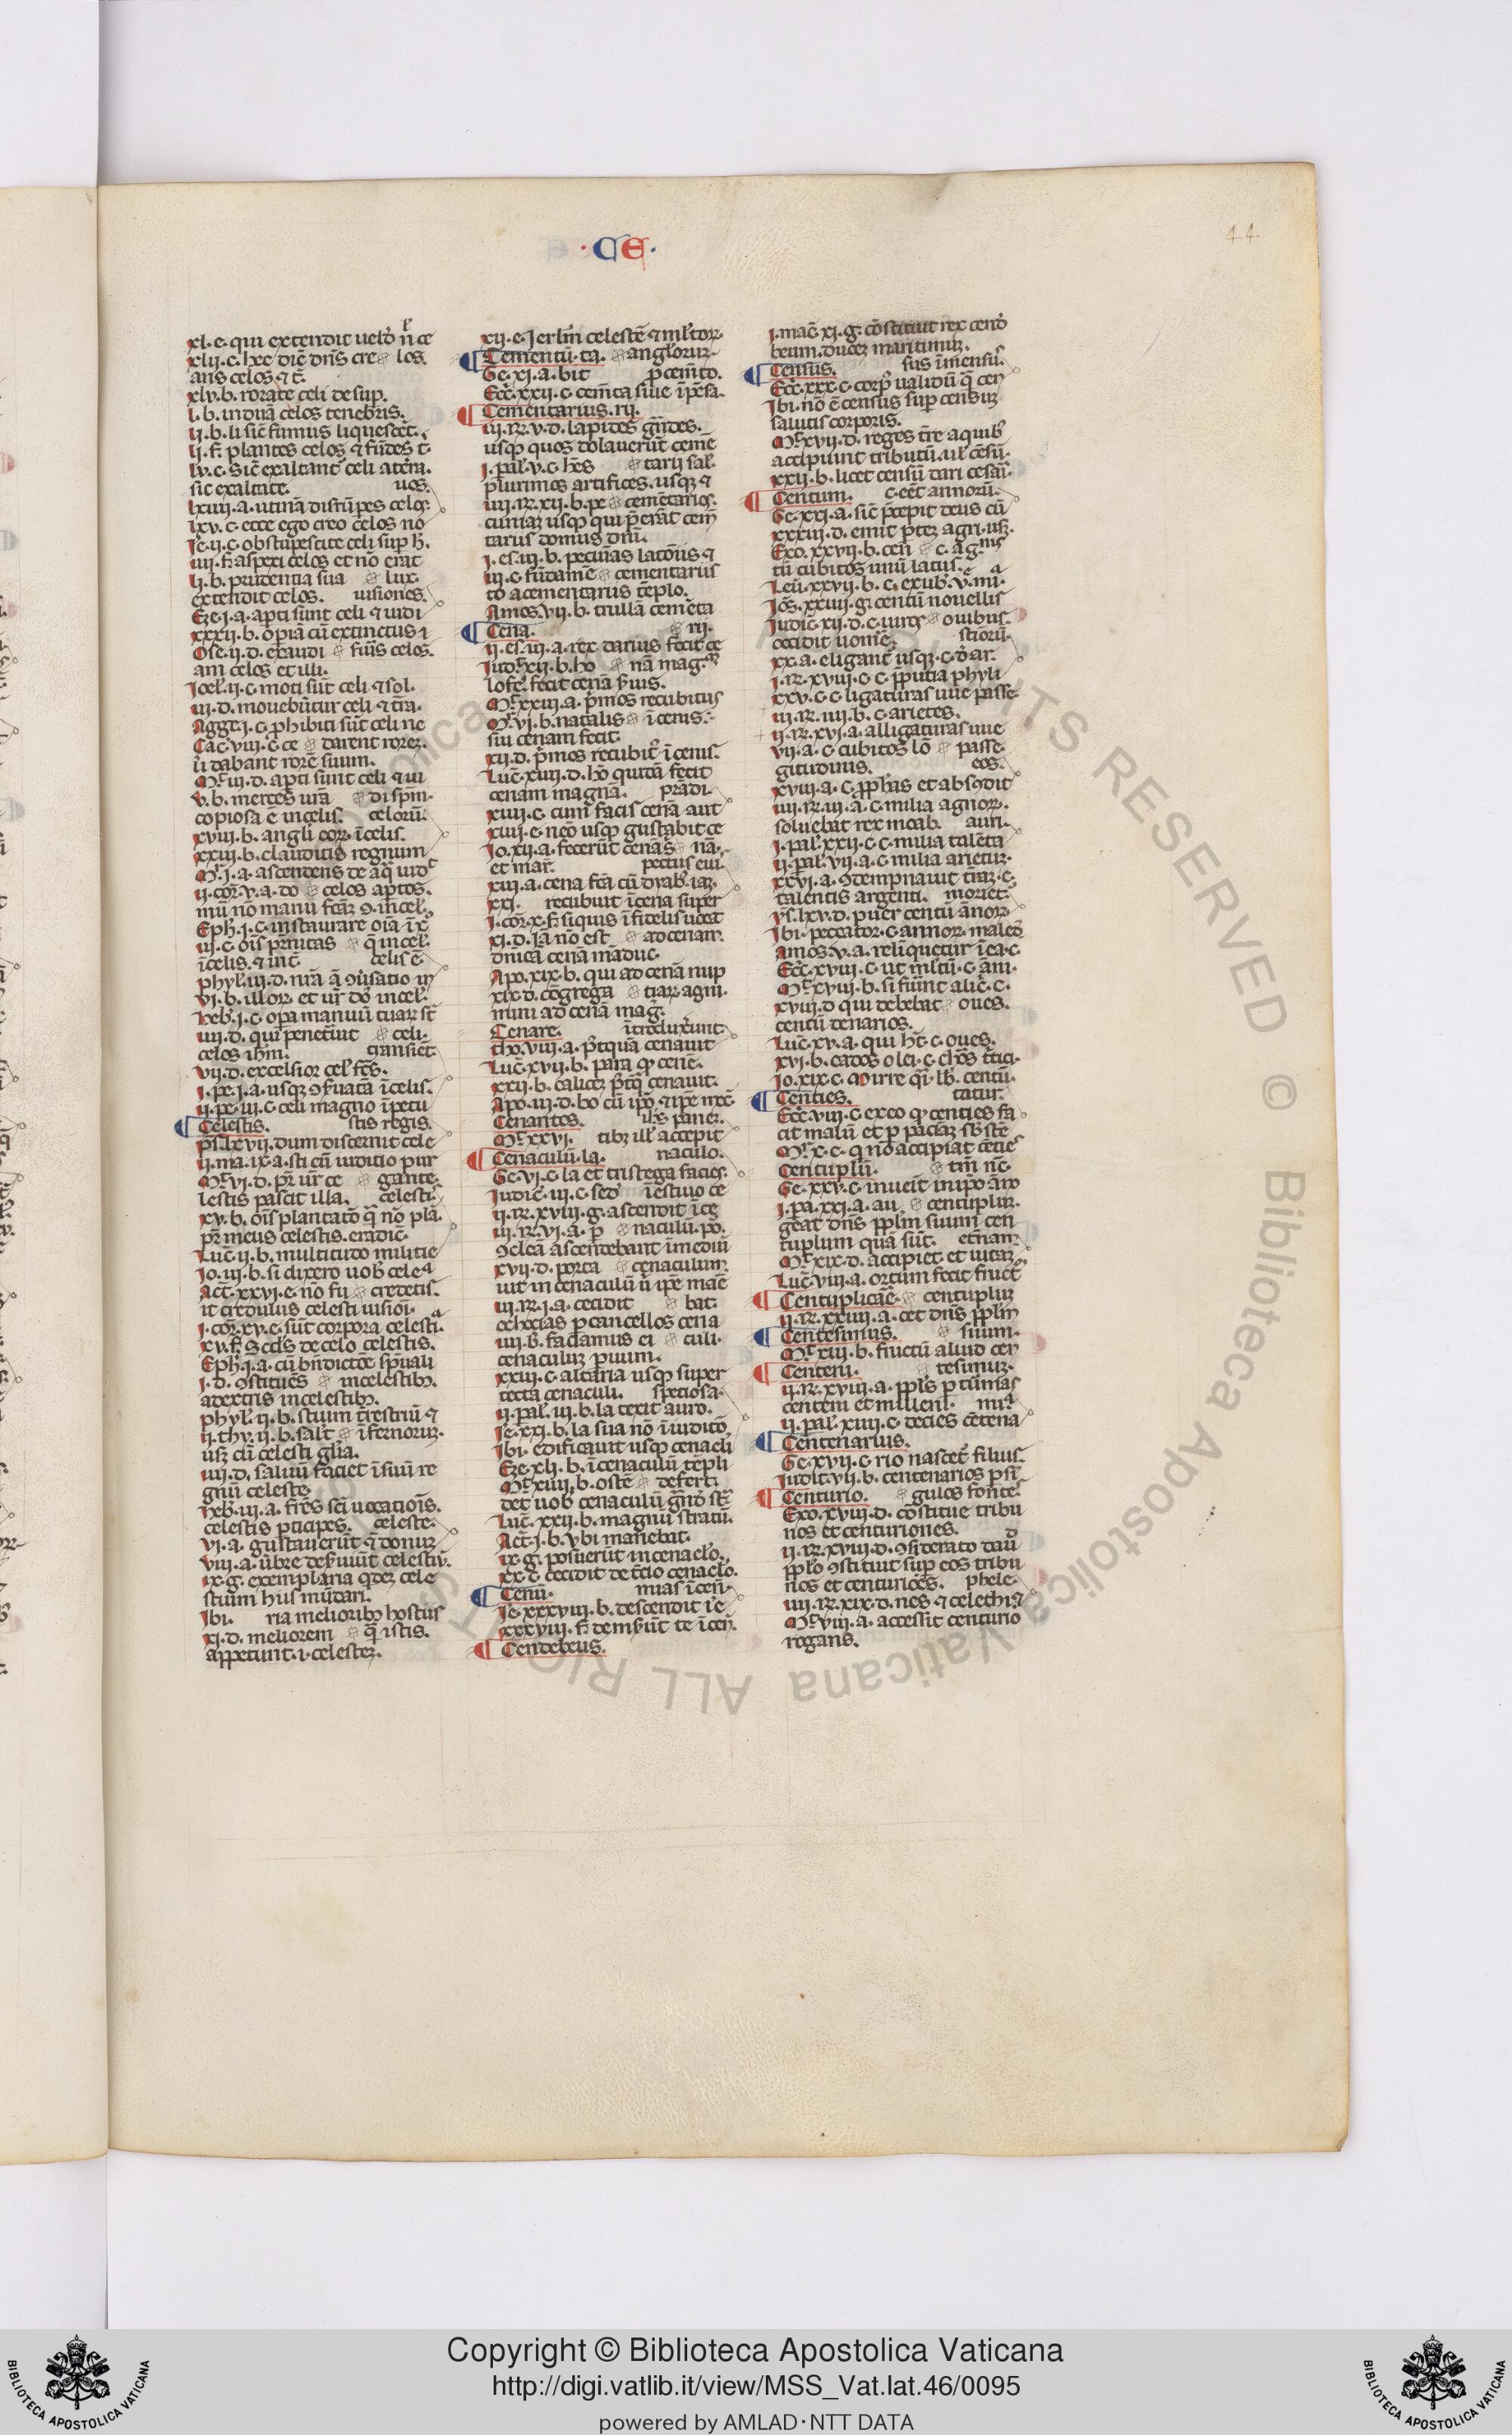 ·CE·
44
xl. e. qui extendit uelđ ñ ce
xlii. c. hec diē dn̄s cre los.
ans celos ⁊ t̄.
xlv. b. rorate celi desup.
l. b. induā celos tenebris.
li. b. li sic̄ fumus liquescēt.
li. f. plantes celos ⁊ fūdes t̄.
lv. c. Sic̄ exaltant̄ celi at̄ra.
sic exaltate. uos.
lxiiii. a. utinā disrūpes celos.
lxv. c. ecce ego creo celos no
Je. ii. c. obstupescite celi sup h̄.
iiii. f. aspexi celos et nō erat
li. b. prudentia sua lux.
extendit celos. uisiones.
Eze. i. a. apti sunt celi ⁊ uidi
xxxii. b. opiā cū extinctus
Ose. ii. d. exaudi fuis celos.
am celos et illi.
Joel. ii. c. moti sūt celi ⁊ sol.
iii. d. mouebūtur celi ⁊ t̄ra.
Agge. i. c. phibiti sūt celi ne
Zac. viii. c. ce darent rorez.
li dabant rorē suum.
Mt. iii. d. apti sunt celi ⁊ ui
v. b. merces ur̄a di sp̄m.
copiosa ē incelis. celorū.
xviii. b. angli eor. īcelis.
xxiii. b. clauditis regnum
Mr. i. a. ascendens de aq̄ uid
ii. cor. v. a. do celos aptos.
mū nō manu fc̄az incel.
Eph. i. c. instaurare oīa ī x
iii. c. oīs pr̄nitas q̄ incel.
īcelis. ⁊ inc̄ celis ē
phyl. iii. d. nr̄a ā ūsatio in
vi. b. illor. et ur̄ dō incel.
heb. i. c. opa manuū tuar. st̄
iiii. d. qui penet̄uit celi.
celos ih̄m. transiēt.
vii. d. excelsior cel. fc̄s.
i. pe. i. a. usqz ꝯseruatā īcelis.
ii. pe. iii. c. celi magno īpetu
Celestis. stis regis.
ps. lxvii. dum discernit cele
ii. ma. ix. a. sti cū iuditio pur
Mt. vi. d. pr̄ ur̄ ce gante.
lestis pascit illa. celesti.
xv. b. oīs plantatō q̄ nō plā.
pr̄ meus celestis. eradic̄.
Luc̄. ii. b. multitudo militie
Jo. iii. b. si dixero uob cele
Act̄. xxvi. e. nō fu credetis.
it credulus celesti uisiōi.
i. cor. xv. e. sūt corpora celesti.
xv. f. scd̄s de celo celestis.
Eph. i. a. cū bn̄dictōe sp̄uali
i. d. ꝯstituēs incelestibꝫ.
adextris incelestibꝫ.
phyl. ii. b. celestium t̄restriū ⁊
ii. thy. ii. b. salt īfernoruz.
usz cū celesti gl̄ia.
iiii. d. saluū faciet ī suū re
gnū celeste.
heb. iii. a. fr̄es sc̄i uocatiōis.
celestis pticipes. celeste.
vi. a. gustauerūt ⁊ donuz
viii. a. ūbre deseruiūt celestiū.
ix. g. exemplaria q̄dez cele
stium his mūdari.
Ibi. ria melioribꝫ hostiis
xi. d. meliorem q̄ istis.
appetunt. i. celestez.
xii. e. Jerlm̄ celestē ⁊ ml̄tor.
Cementū. ta. anglorur.
Ge. xi. a. bit p cemīto.
Ecc̄. xxii. c. cemīta siue īpēsa.
Cementarius. rii.
iii. R. v. d. lapides gr̄ndes.
usqꝫ quos dolauerūt ceme
i. pal. v. c. h̄es tarii sal.
plurimos artifices. usqꝫ ⁊
iiii. R. xii. b. pe cemētarios.
cuniaz usqꝫ qui p̄erāt cem̄
tariis domus dn̄i.
i. es. iii. b. pecūias latōīs ⁊
iii. c. fūdamē cementariis
to acementariis tēplo.
Amos. vii. b. trullā cemēta
Cena. rii.
ii. es. iii. a. rex darius fecit ce
Judic̄. xii. b. ho nā mag.
lofer. fecit cenā suis.
Mt. xxiii. a. p̄mos recubitus
Mr. vi. b. natalis ī cenis.
sui cenam fecit.
xii. d. p̄mos recubit ī cenis.
Luc̄. xiiii. d. hō quidā fecit
cenam magnā. prādi.
xiiii. c. cum facis cenā aut
xiiii. e. neō usqꝫ gustabit ce
Jo. xii. a. fecerūt cenās nā.
et mar̄. pectus eiu
xiii. a. cena fc̄a cū dyab. iaz.
xxi. recubuit īcena super
i. cor. x. f. siquis īfidelis uocat
xi. d. Jā nō est ad cenam.
dnicā cenā māduc.
Apo. xix. b. qui ad cenā nup
xix. d. cōgrega tiar. agni.
mini ad cenā mag.
Cenare. ītroduxerunt.
tho. viii. a. p̄tquā cenauit
Luc̄. xvii. b. para qꝫ cene.
xxii. b. calicez p̄tq̄ cenauit.
Apo. iii. d. bo cū ipō ⁊ ipē mec̄
Cenantes. ills panez.
Mt. xxvi. tibꝫ ill accepit
Cenaculū. la. naculo.
Ge. vi. c. la et tristega facies.
Judic̄. iii. c. sed īestiuo ce
ii. R. xviii. g. ascendit īce
iii. R. vi. a. p naculū. pō.
ꝯcleā ascendebant īmediū
xvii. d. porta cenaculum.
uit in cenaculū ū ipē maē
iiii. R. i. a. cecidit bat.
ochozias p cancellos cena
iiii. b. faciamus ei culi.
cenaculuz puum.
xxiii. c. altaria usqꝫ super
tecta cenaculi. spetiosa.
ii. pal. iii. b. la texit auro.
Je. xxi. b. la sua nō ī iuditō
Ibi. edificauit usqꝫ cenacli
Eze. xli. b. īcenaculū tēpli
Mr. xiiii. b. ostē defert.
det uob cenaculū gr̄nd st̄
Luc̄. xxii. b. magnū stratū.
Act̄. i. b. vbi manebat.
ix. g. posuerūt in cenaclo.
xx. c. cecidit de t̄cio cenaclo.
Cenū. mias īcen.
Je. xxxviii. b. descendit ie
xxxviii. f. demserūt te īcen.
Cendebeus.
i. mac̄. xi. g. cōstituit rex cend
beum. ducez maritimuz.
Census. sus īmensū.
Ecc̄. xxx. c. corp ualidū q̄ cen
Ibi. nō ē census sup censuz
salutis corporis.
Mt. xvii. d. reges t̄re aquib
accipiunt tributū. ul cēsū.
xxii. b. licet censū dari cesari.
Centum. c. eēt annorū.
Ge. xxi. a. sic̄ p̄cepit deus cū
xxxiii. d. emit ptez agri. usz.
Exo. xxvii. b. cen c. āg.
tū cubitos unū latus.
Leu. xxvii. b. c. exub. v. mi.
Jos. xxiiii. g. centū nouellis
Judic̄. xii. d. c. uiros ouibus.
occidit uomē. stiorū.
xx. a. eligant̄ usqꝫ. c. d ar.
i. R. xviii. c. c. pputia phyli
xxv. c. c. ligaturas uue passe.
iii. R. iiii. b. c. arietes.
ii. R. xvi. a. alligaturas uue
vii. a. c. cubitos lō passe.
gitudinis. eos.
xviii. a. c. pp̄has et abscōdit
iiii. R. iii. a. c. milia agnor.
soluebat rex moab. auri.
i. pal. xxii. c. c. milia talēta
ii. pal. vii. a. c. milia arietuz.
xxvi. a. ꝯdempnauit t̄raz. c.
talentis argenti. moriet.
ys. lxv. d. puer centū annor.
Ibi. peccator. c. annor. maled
Amos. v. a. relīquetur ī ea. c.
Ecc̄. xviii. c. ut ml̄tū. c. āni.
Mt. xviii. b. si fuīnt alic̄. c.
xviii. d. qui debebat oues.
centū denarios.
Luc̄. xv. a. qui h̄t. c. oues.
xvi. b. cados olei. c. chōs t̄tici.
Jo. xix. c. mirre q̄i. lb. centū.
Centies. tatur.
Ecc̄. viii. c. ex eo qꝫ centies fa
cit malū et p paciaz sb̄stē
Mr. x. c. q nō accipiat cētie
Centuplū. tm̄ nc̄.
Ge. xxv. c. inueīt inipo āno
i. pa. xxi. a. au centupluz.
geat dn̄s pplm suum cen
tuplum quā sūt. et̄nam
Mt. xix. d. accipiet et uitaz
Luc̄. viii. a. ortum fecit fruct̄
Centuplicāe. centupluz
ii. R. xxiiii. a. cet dn̄s pplm̄
Centesimus. suum.
Mt. xiii. b. fructū aliud cen
Centeni. tesimuz.
ii. R. xviii. a. ppl's p turmas
centeni et milleni. mi
ii. pal. xiiii. c. decies cētena
Centenarius.
Ge. xvii. c. rio nascet filius.
Judit. vii. b. centenarios p si
Centurio. gulos fonte.
Exo. xviii. d. cōstitue tribu
nos et centuriones.
ii. R. xviii. d. ꝯsiderato dau
pplo ꝯstituit sup eos tribu
nos et centuriōes. phele.
iiii. R. xix. d. nes ⁊ celethi
Mt. viii. a. accessit centurio
rogans.
Biblioteca Apostolica Vaticana ALL RIGHTS RESERVED © Biblioteca Apostolica Vaticana ALL RIGHTS RESERVED
BIBLIOTECA APOSTOLICA VATICANA
Copyright © Biblioteca Apostolica Vaticana
http://digi.vatlib.it/view/MSS_Vat.lat.46/0095
powered by AMLAD·NTT DATA
BIBLIOTECA APOSTOLICA VATICANA